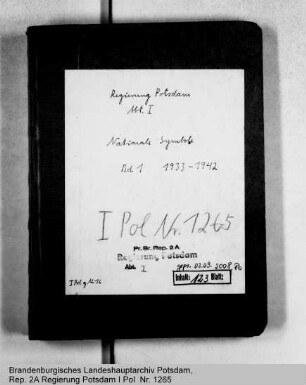 Regierung Potsdam
Abt. I
Nationale Symbole
Bd. 1 1933-1942
I Pol Nr. 1265
Pr. Br. Rep. 2A
Regierung Potsdam
Abt. I
gepr. 02.03.2008
Inhalt: 123 Blatt:
Brandenburgisches Landeshauptarchiv Potsdam,
Rep. 2A Regierung Potsdam I Pol Nr. 1265